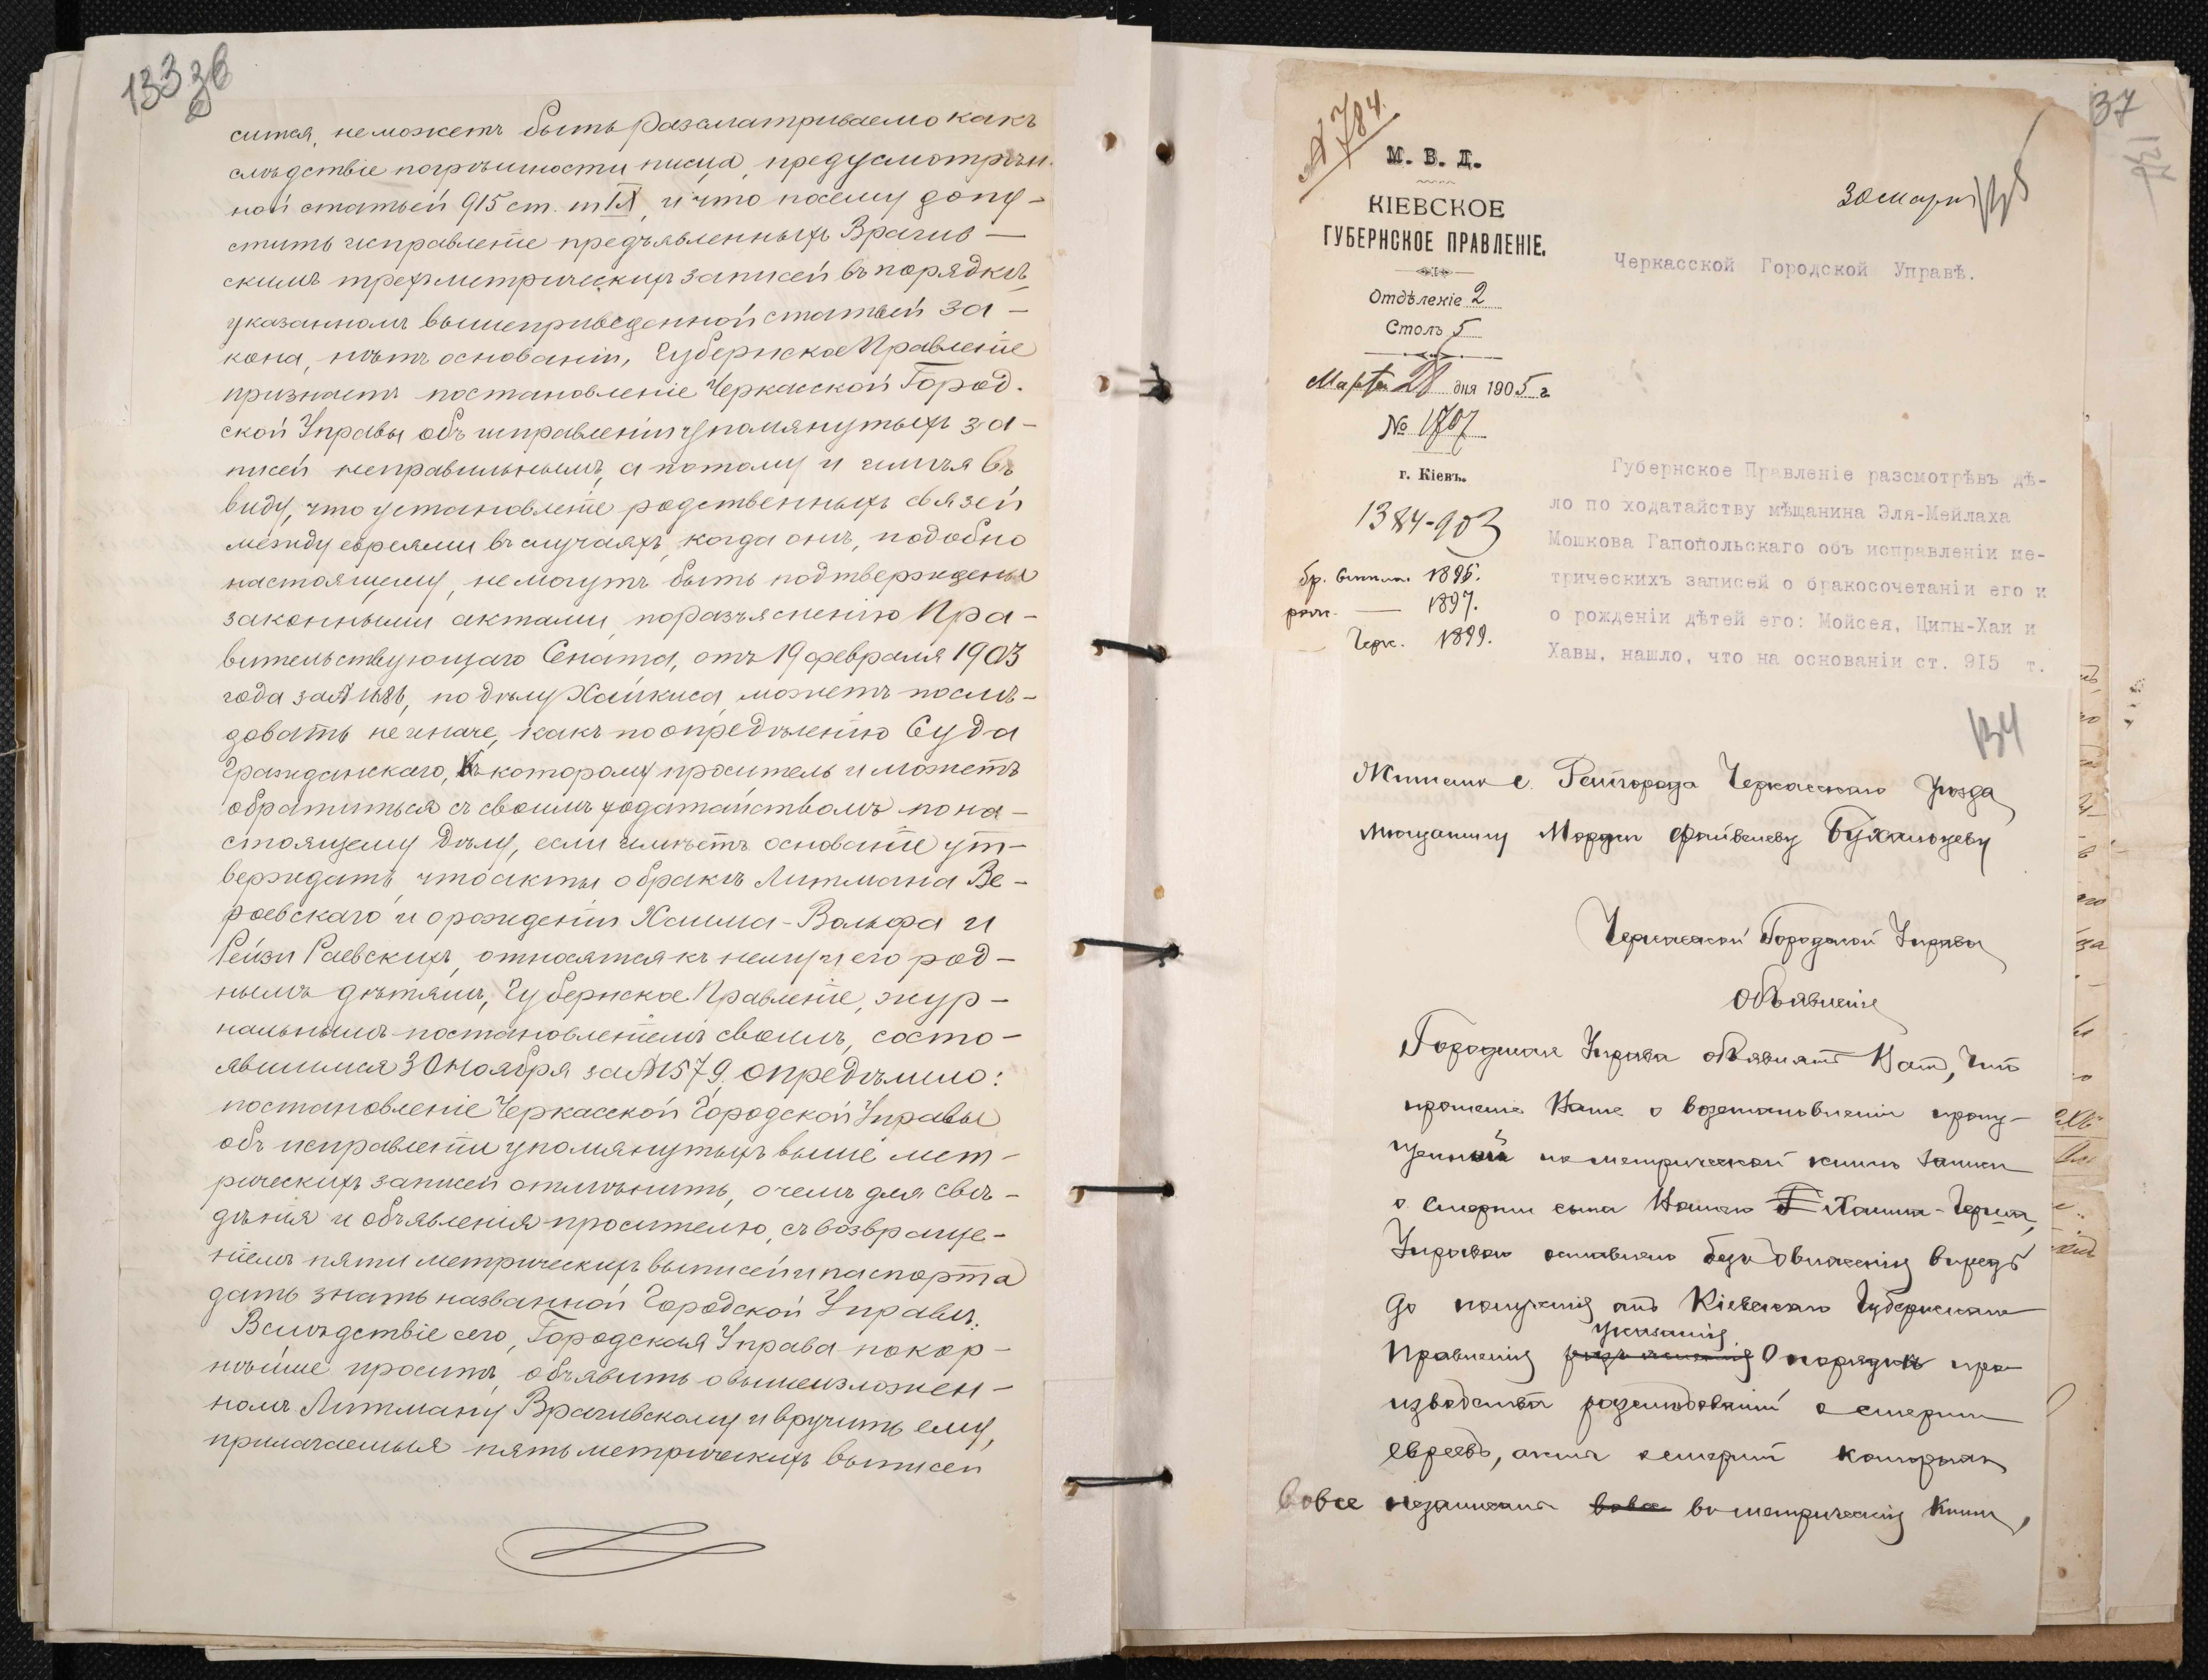 133 36
сится, не можетъ быть разсматриваемо какъ
слѣдствіе погрѣшности писца, предусмотрѣн-
ной статьей 915 ст. т IX, и что посему допу-
стить исправленіе предъявленныхъ Врачив-
скимъ трехъ метрическихъ записей въ порядкѣ,
указанномъ вышеприведенной статьей за-
кона, нѣтъ основаній, Губернское Правленіе
признаетъ постановленіе Черкасской Город-
ской Управы объ исправленіи упомянутыхъ за-
писей неправильнымъ, а потому и имѣя въ
виду, что установленіе родственныхъ связей
между евреями въ случаяхъ, когда онѣ, подобно
настоящему, не могутъ быть подтверждены
законными актами, по разъясненію Пра-
вительствующаго Сената, отъ 19 февраля 1903
года за № 1686, по дѣлу Хайкиса, можетъ послѣ-
довать не иначе, какъ по опредѣленію Суда
Гражданскаго, къ которому проситель и можетъ
обратиться съ своимъ ходатайствомъ по на-
стоящему дѣлу, если имѣетъ основаніе ут-
верждать, что акты о бракѣ Литмана Ве-
роевскаго и о рожденіи Хаима-Вольфа и
Рейзи Раевскихъ, относятся къ нему и его род-
нымъ дѣтямъ, Губернское Правленіе, жур-
нальнымъ постановленіемъ своимъ, состо-
явшимся 30 Ноября за № 1579, опредѣлило:
постановленіе Черкасской Городской Управы
объ исправленіи упомянутыхъ выше мет-
рическихъ записей отмѣнить, о чемъ для свѣ-
дѣнія и объявленія просителю, съ возвраще-
ніемъ пяти метрическихъ выписей и паспорта
дать знать названной Городской Управѣ.
Вслѣдствіе сего, Городская Управа покор-
нѣйше проситъ объявить о вышеизложен-
номъ Литману Врачивскому и вручить ему,
прилагаемыя пять метрическихъ выписей
37
№ 784.
М. В. Д.
КІЕВСКОЕ
ГУБЕРНСКОЕ ПРАВЛЕНІЕ.
Отдѣленіе 2
Столъ 5
Марта 28 дня 1905 г.
№ 1707
г. Кіевъ.
1384-903
бр. 1895.
1897.
Черк. 1899.
30 марта
Черкасской Городской Управѣ.
Губернское Правленіе разсмотрѣвъ дѣ-
ло по ходатайству мѣщанина Эля-Мейлаха
Мошкова Гапопольскаго объ исправленіи ме-
трическихъ записей о бракосочетаніи его и
о рожденіи дѣтей его: Мойсея, Ципы-Хаи и
Хавы, нашло, что на основаніи ст. 915 т.
134
Жителю с. Райгорода Черкасскаго Уѣзда
мѣщанину Мордки Файвелеву Бухальцеву
Черкасской Городской Управы
Объявленіе
Городская Управа объявляетъ Вамъ, что
прошеніе Ваше о возстановленіи пропу-
щенной по метрической книгѣ записи
о смерти сына Вашего Хаима-Герша,
Управою оставлено безъ движенія впредь
до полученія отъ Кіевскаго Губернскаго
указанія
Правленія о порядкѣ про
изводства разслѣдованій о смерти
евреевъ, акты о смерти которыхъ
вовсе не записаны вовсе въ метрическія книги,